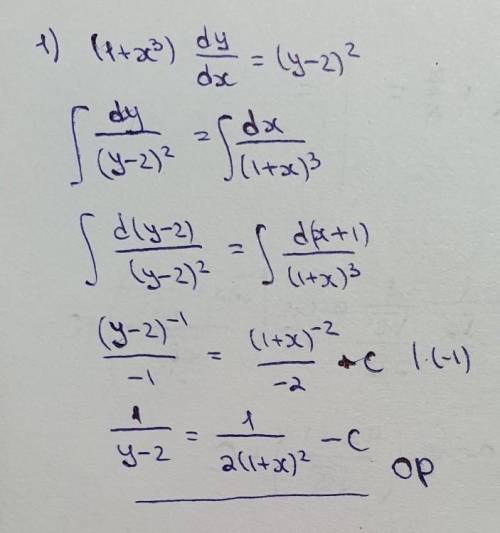 1) (1+x³) dy/dx = (y-2)²
∫ dy/(y-2)² = ∫ dx/(1+x)³
∫ d(y-2)/(y-2)² = ∫ d(x+1)/(1+x)³
(y-2)⁻¹/-1 = (1+x)⁻²/-2 + C |·(-1)
1/(y-2) = 1/(2(1+x)²) - C
OP